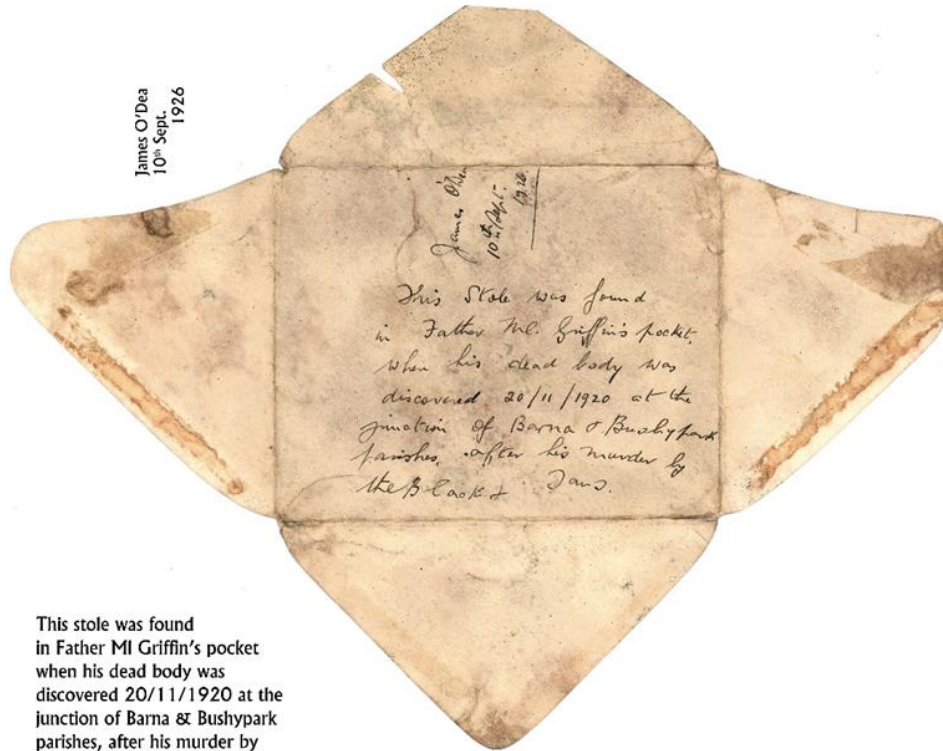 James O'Dea
10th Sept.
1926
James O'Dea
10th Sept.
1926
This Stole was found
in Father Ml. Griffin's pocket,
when his dead body was
discovered 20/11/1920 at the
junction of Barna & Bushypark
parishes, after his murder by
the Black & Tans.
This stole was found
in Father Ml Griffin's pocket
when his dead body was
discovered 20/11/1920 at the
junction of Barna & Bushypark
parishes, after his murder by